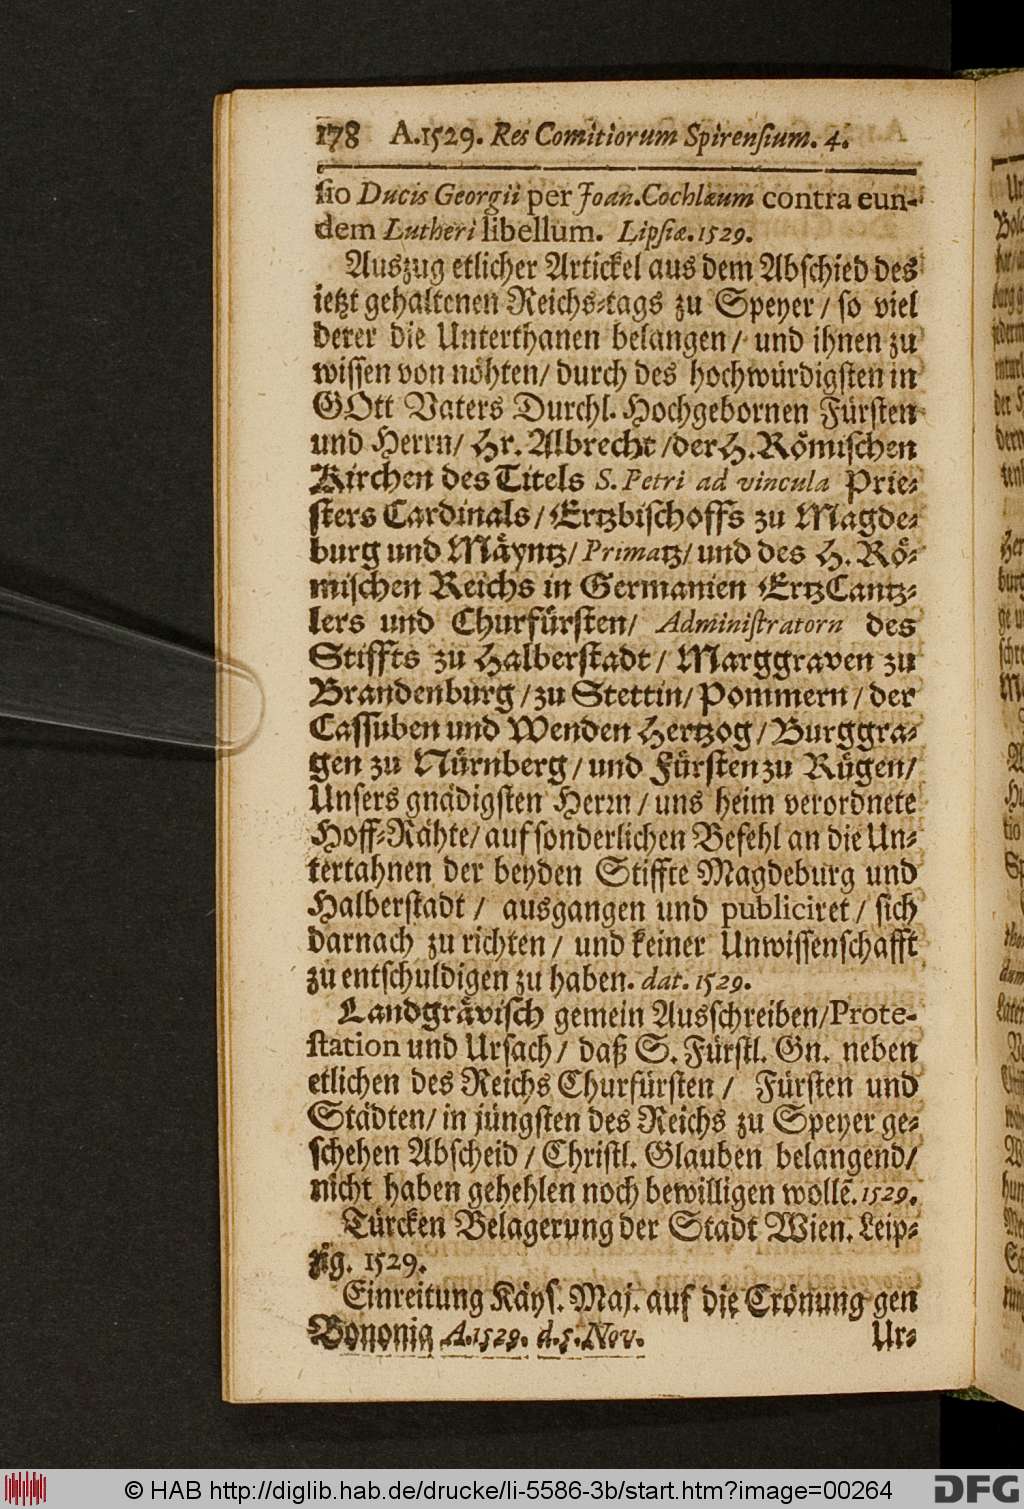 178 A.1529. Res Comitiorum Spirensium. 4.
sio Ducis Georgii per Joan. Cochlæum contra eun-
dem Lutheri libellum. Lipsiæ. 1529.
Auszug etlicher Artickel aus dem Abschied des
ietzt gehaltenen Reichs-tags zu Speyer / so viel
derer die Unterthanen belangen / und ihnen zu
wissen von nöhten / durch des hochwürdigsten in
GOtt Vaters Durchl. Hochgebornen Fürsten
und Herrn / Hr. Albrecht / der H. Römischen
Kirchen des Titels S. Petri ad vincula Prie-
sters Cardinals / Ertzbischoffs zu Magde-
burg und Mäyntz / Primatz / und des H. Rö-
mischen Reichs in Germanien ErtzCantz-
lers und Churfürsten / Administratorn des
Stiffts zu Halberstadt / Marggraven zu
Brandenburg / zu Stettin / Pommern / der
Cassuben und Wenden Hertzog / Burggra-
gen zu Nürnberg / und Fürsten zu Rügen /
Unsers gnädigsten Herrn / uns heim verordnete
Hoff-Rähte / auf sonderlichen Befehl an die Un-
tertahnen der beyden Stiffte Magdeburg und
Halberstadt / ausgangen und publiciret / sich
darnach zu richten / und keiner Unwissenschafft
zu entschuldigen zu haben. dat. 1529.
Landgrävisch gemein Ausschreiben / Prote-
station und Ursach / daß S. Fürstl. Gn. neben
etlichen des Reichs Churfürsten / Fürsten und
Städten / in jüngsten des Reichs zu Speyer ge-
schehen Abscheid / Christl. Glauben belangend /
nicht haben gehehlen noch bewilligen wollẽ. 1529.
Türcken Belagerung der Stadt Wien. Leip-
zig. 1529.
Einreitung Käys. Maj. auf die Crönung gen
Bononia A. 1529. d. 5. Nov.
Ur-
© HAB http://diglib.hab.de/drucke/li-5586-3b/start.htm?image=00264
DFG